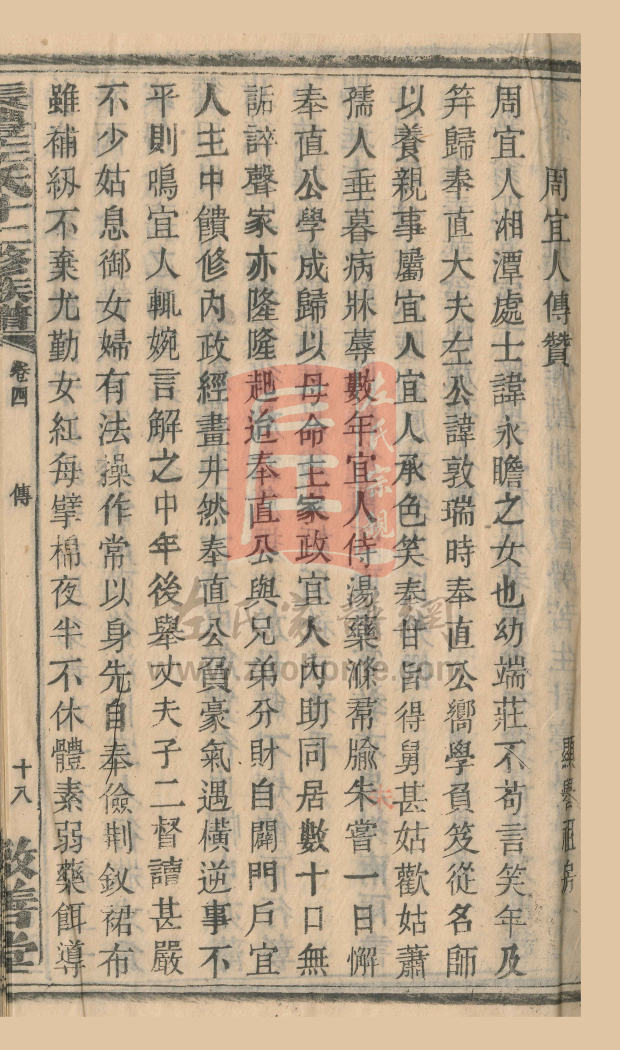 周宜人傳贊
周宜人湘潭處士諱永瞻之女也幼端莊不苟言笑年及
笄歸奉直大夫左公諱敦瑞時奉直公嚮學負笈從名師
以養親事屬宜人宜人承色笑奉甘旨得舅甚姑歡姑蕭
孺人垂暮病牀蓐數年宜人侍湯藥滌帬牏朱嘗一日懈
奉直公學成歸以母命主家政宜人內助同居數十口無
詬誶聲家亦隆隆起迨奉直公與兄弟分財自闢門戶宜
人主中饋修內政經畫井然奉直公負豪氣遇橫逆事不
平則鳴宜人輒婉言解之中年後舉丈夫子二督讀甚嚴
不少姑息御女婦有法操作常以身先自奉儉荆釵裙布
雖補紉不棄尤勤女紅每擘棉夜半不休體素弱藥餌導
左氏十一修族譜
卷四
傳
十八
敬善堂
左氏宗親
左氏家譜網
www.zuohome.com
未